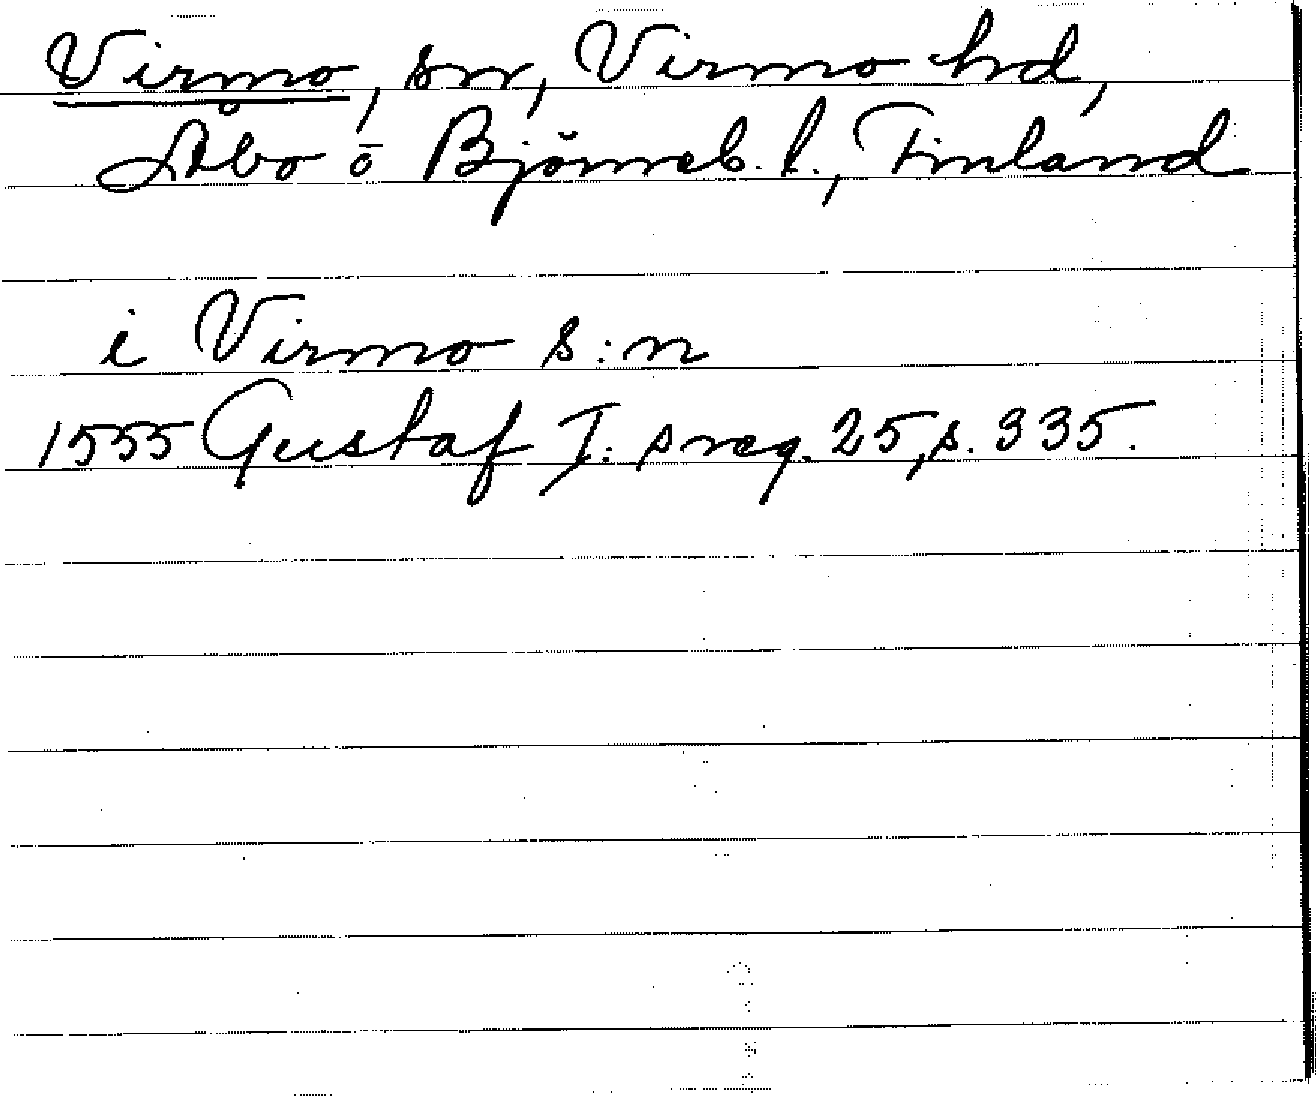 Virmo, sn, Virmo hd,
Åbo o Björneb. l., Finland
i Virmo s:n
1555 Gustaf I: s reg. 25, s. 335.